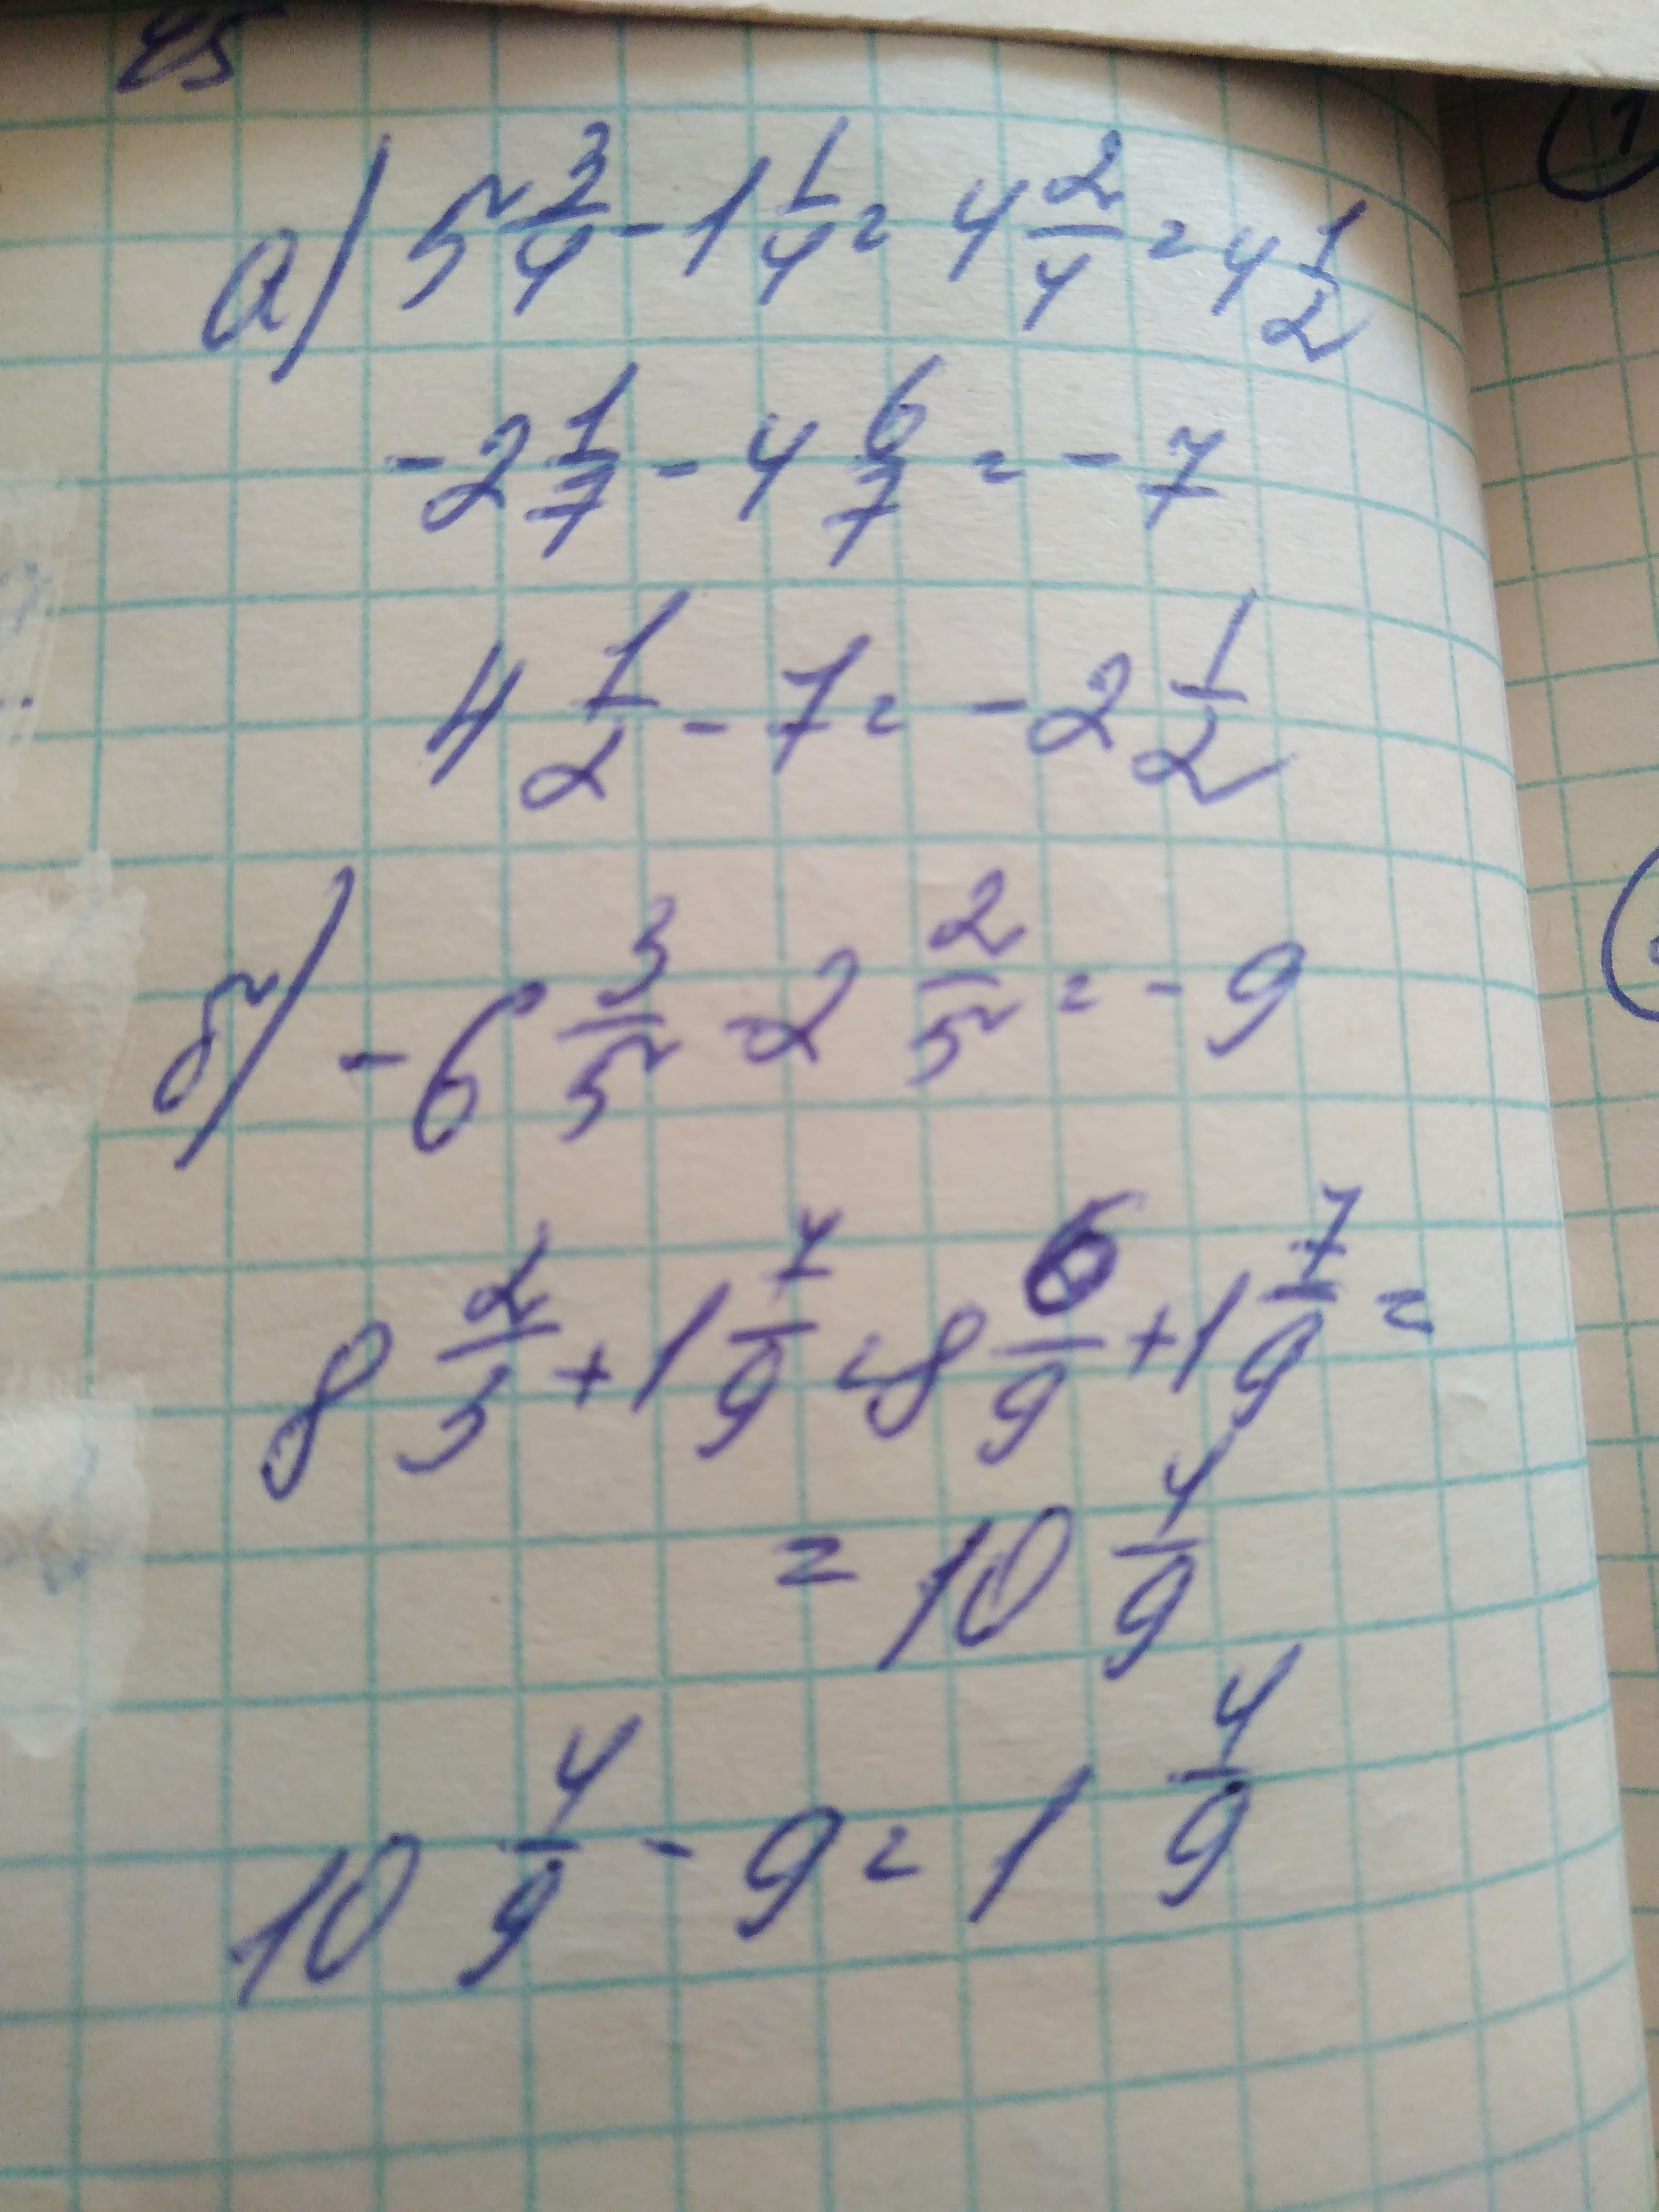 а) 5 3/4 - 1 1/4 = 4 2/4 = 4 1/2
- 2 1/7 - 4 6/7 = - 7
4 1/2 - 7 = - 2 1/2
б) - 6 3/5 - 2 2/5 = - 9
8 2/3 + 1 7/9 = 8 6/9 + 1 7/9 =
= 10 4/9
10 4/9 - 9 = 1 4/9